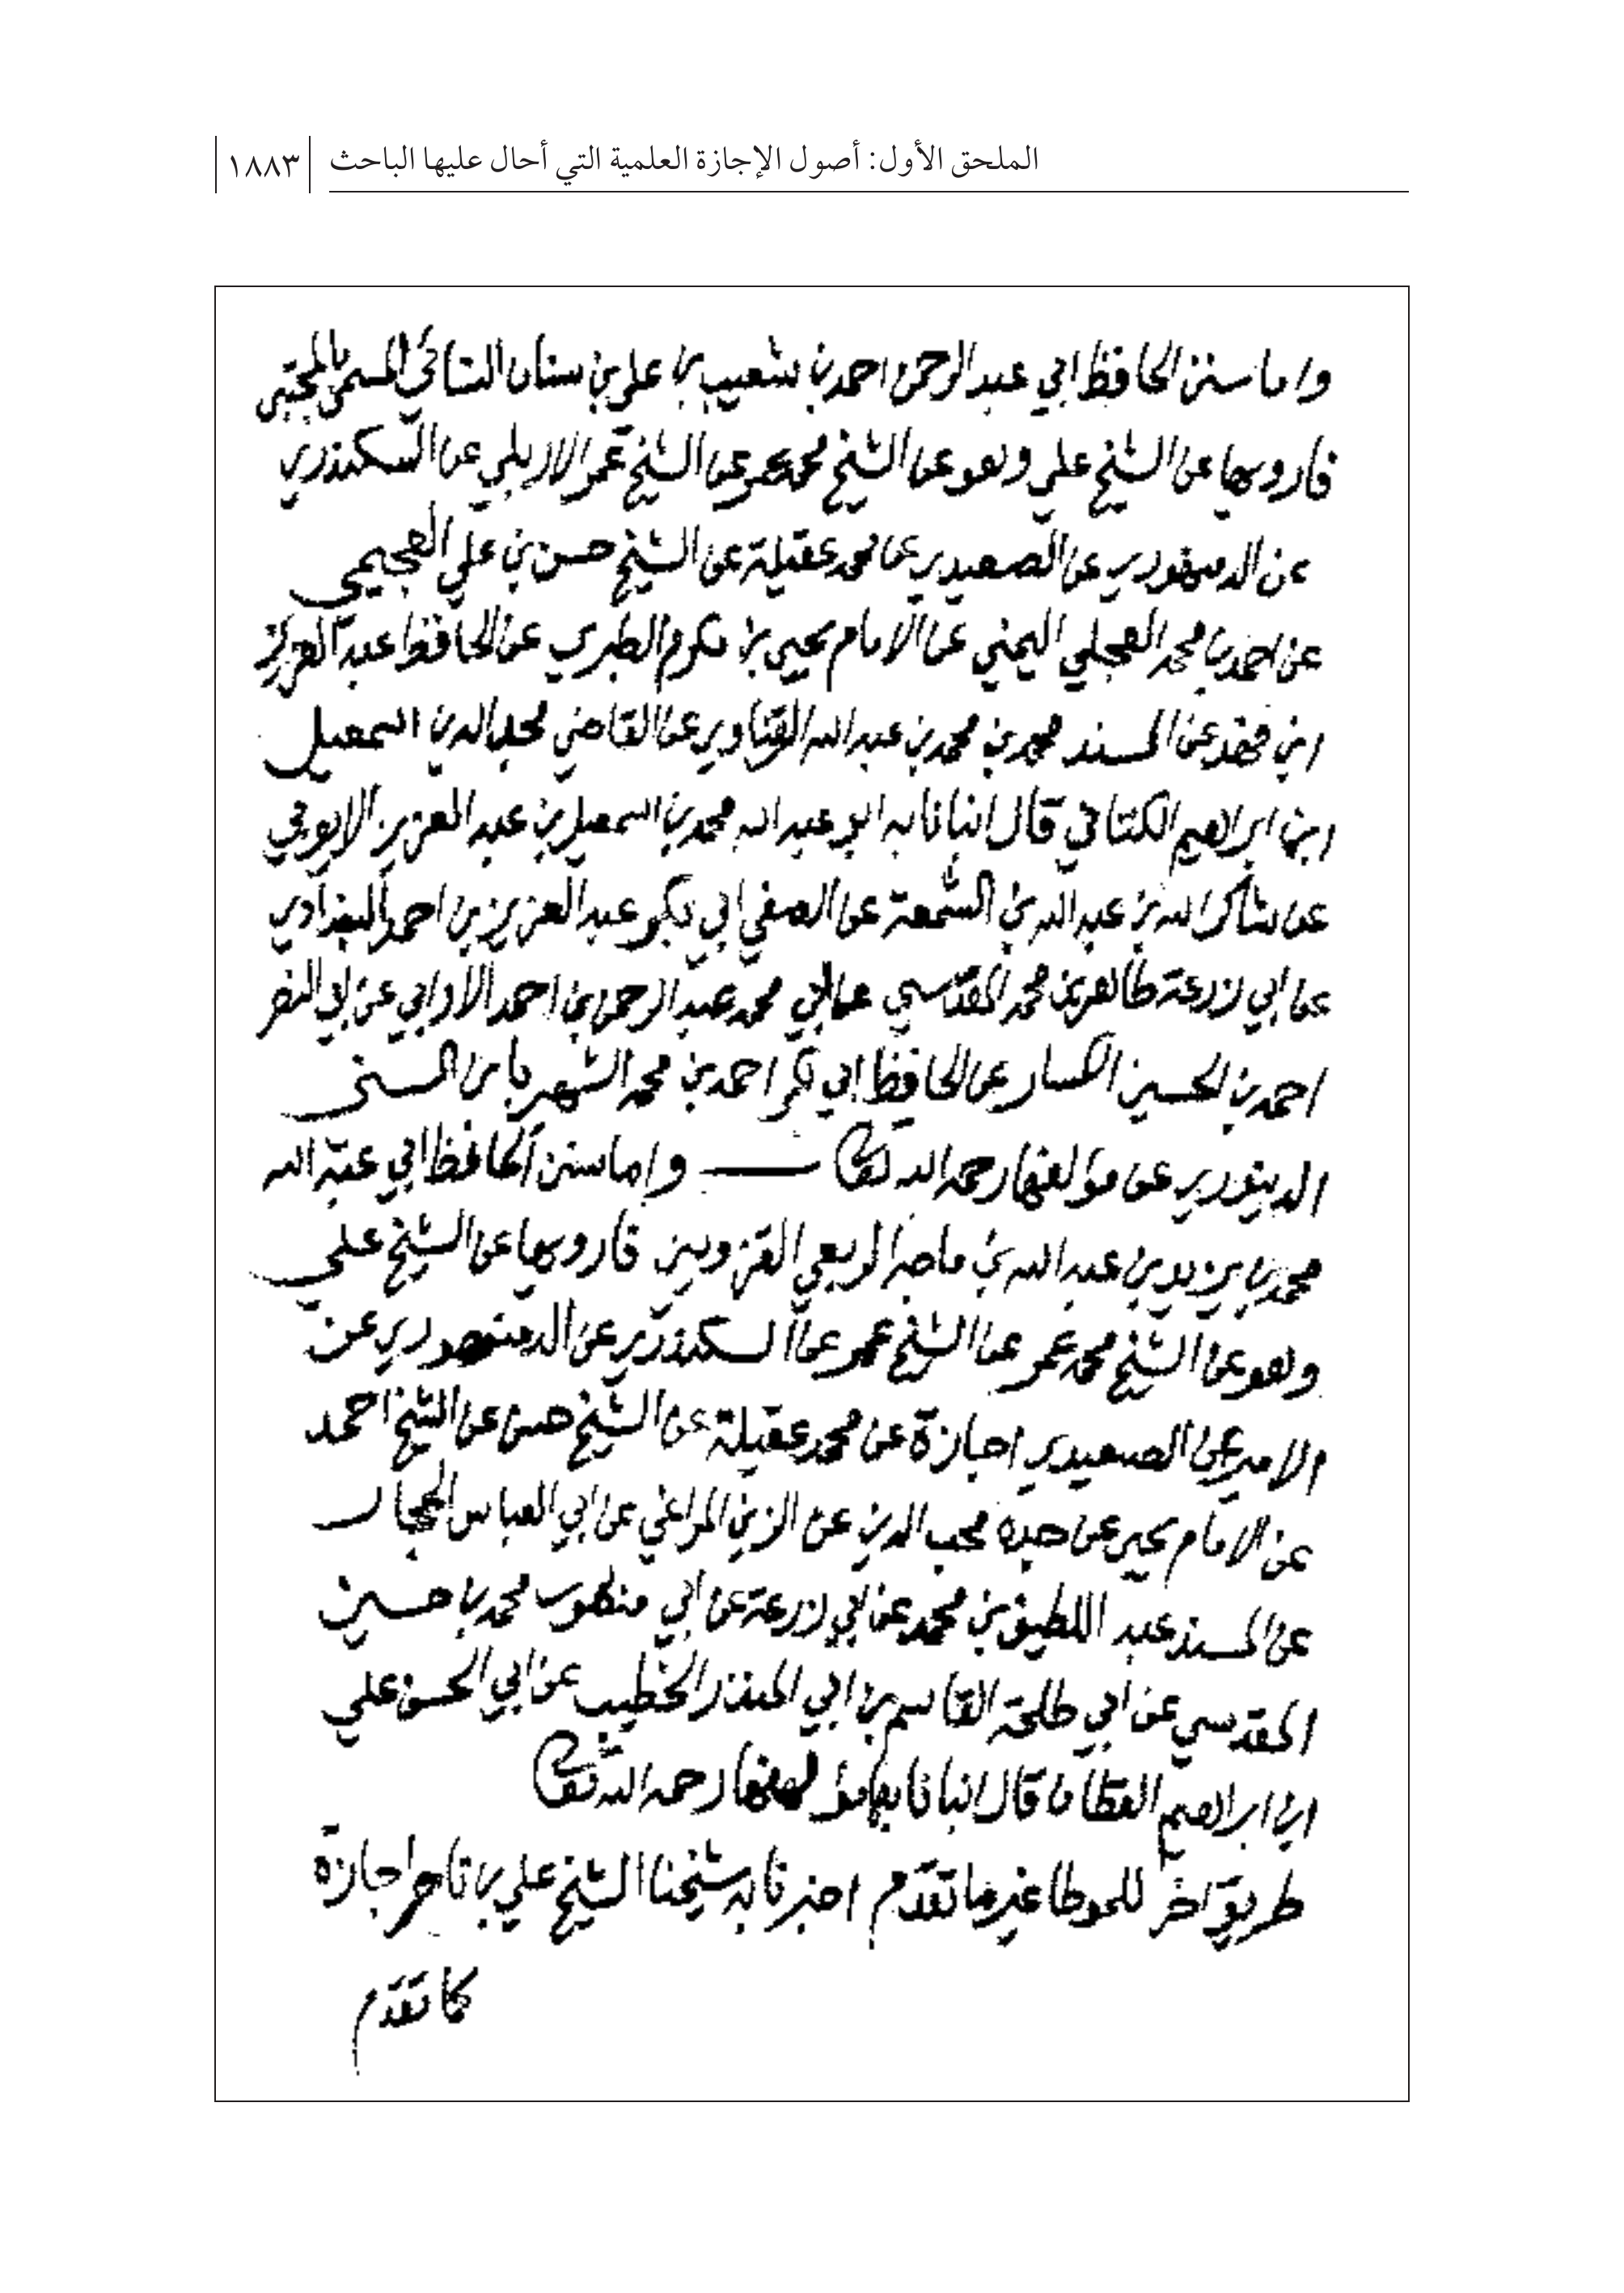 الملحق الأول: أصول الإجازة العلمية التي أحال عليها الباحث ١٨٨٣
واما سنن الحافظ ابي عبد الرحمن احمد بن شعيب بن علي بن سنان النسائي المسمى بالمجتبى
فارويها عن الشيخ علي وهو عن الشيخ محمد عمر عن الشيخ عمر الاربلي عن السكندري
عن الدمنهوري عن الصعيدي عن محمد عقيلة عن الشيخ حسن بن علي العجيمي
عن احمد بن محمد العجلي اليمني عن الامام يحيى بن مكرم الطبري عن الحافظ عبد العزيز
ابن فهد عن المسند محمد بن محمد بن عبد الله عن القاضي مجد الدين اسمعيل
ابن ابراهيم الكتاني قال انبانا به ابو عبد الله محمد بن اسمعيل بن عبد العزيز الايوبي
عن شاكر الله بن عبد الله بن الشمعة عن الصفي ابي بكر عبد العزيز بن احمد البغدادي
عن ابي زرعة طاهر بن محمد المقدسي عن ابي محمد عبد الرحمن بن احمد عن ابي النصر
احمد بن الحسين الكسار عن الحافظ ابي بكر احمد بن محمد الشهير بابن السني
الدينوري عن مؤلفها رحمه الله تعالى واما سنن الحافظ ابي عبد الله
محمد بن يزيد بن عبد الله بن ماجه الربعي القزويني فارويها عن الشيخ علي
وهو عن الشيخ محمد عمر عن الشيخ عمر عن السكندري عن الدمنهوري عن
الامير عن الصعيدي اجازة عن محمد عقيلة عن الشيخ حسن عن الشيخ احمد
عن الامام يحيى عن جده محب الدين عن الزين المراغي عن ابي العباس الحجار
عن المسند عبد اللطيف بن محمد عن ابي زرعة عن ابي منصور محمد بن حسين
المقدسي عن ابي طلحة القاسم بن ابي المنذر الخطيب عن ابي الحسن علي
ابن ابراهيم القطان قال انبانا بها مؤلفها رحمه الله تعالى
طريق اخر للموطا غير ما تقدم اخبرنا به شيخنا الشيخ علي بن تاجر اجازة
كما تقدم